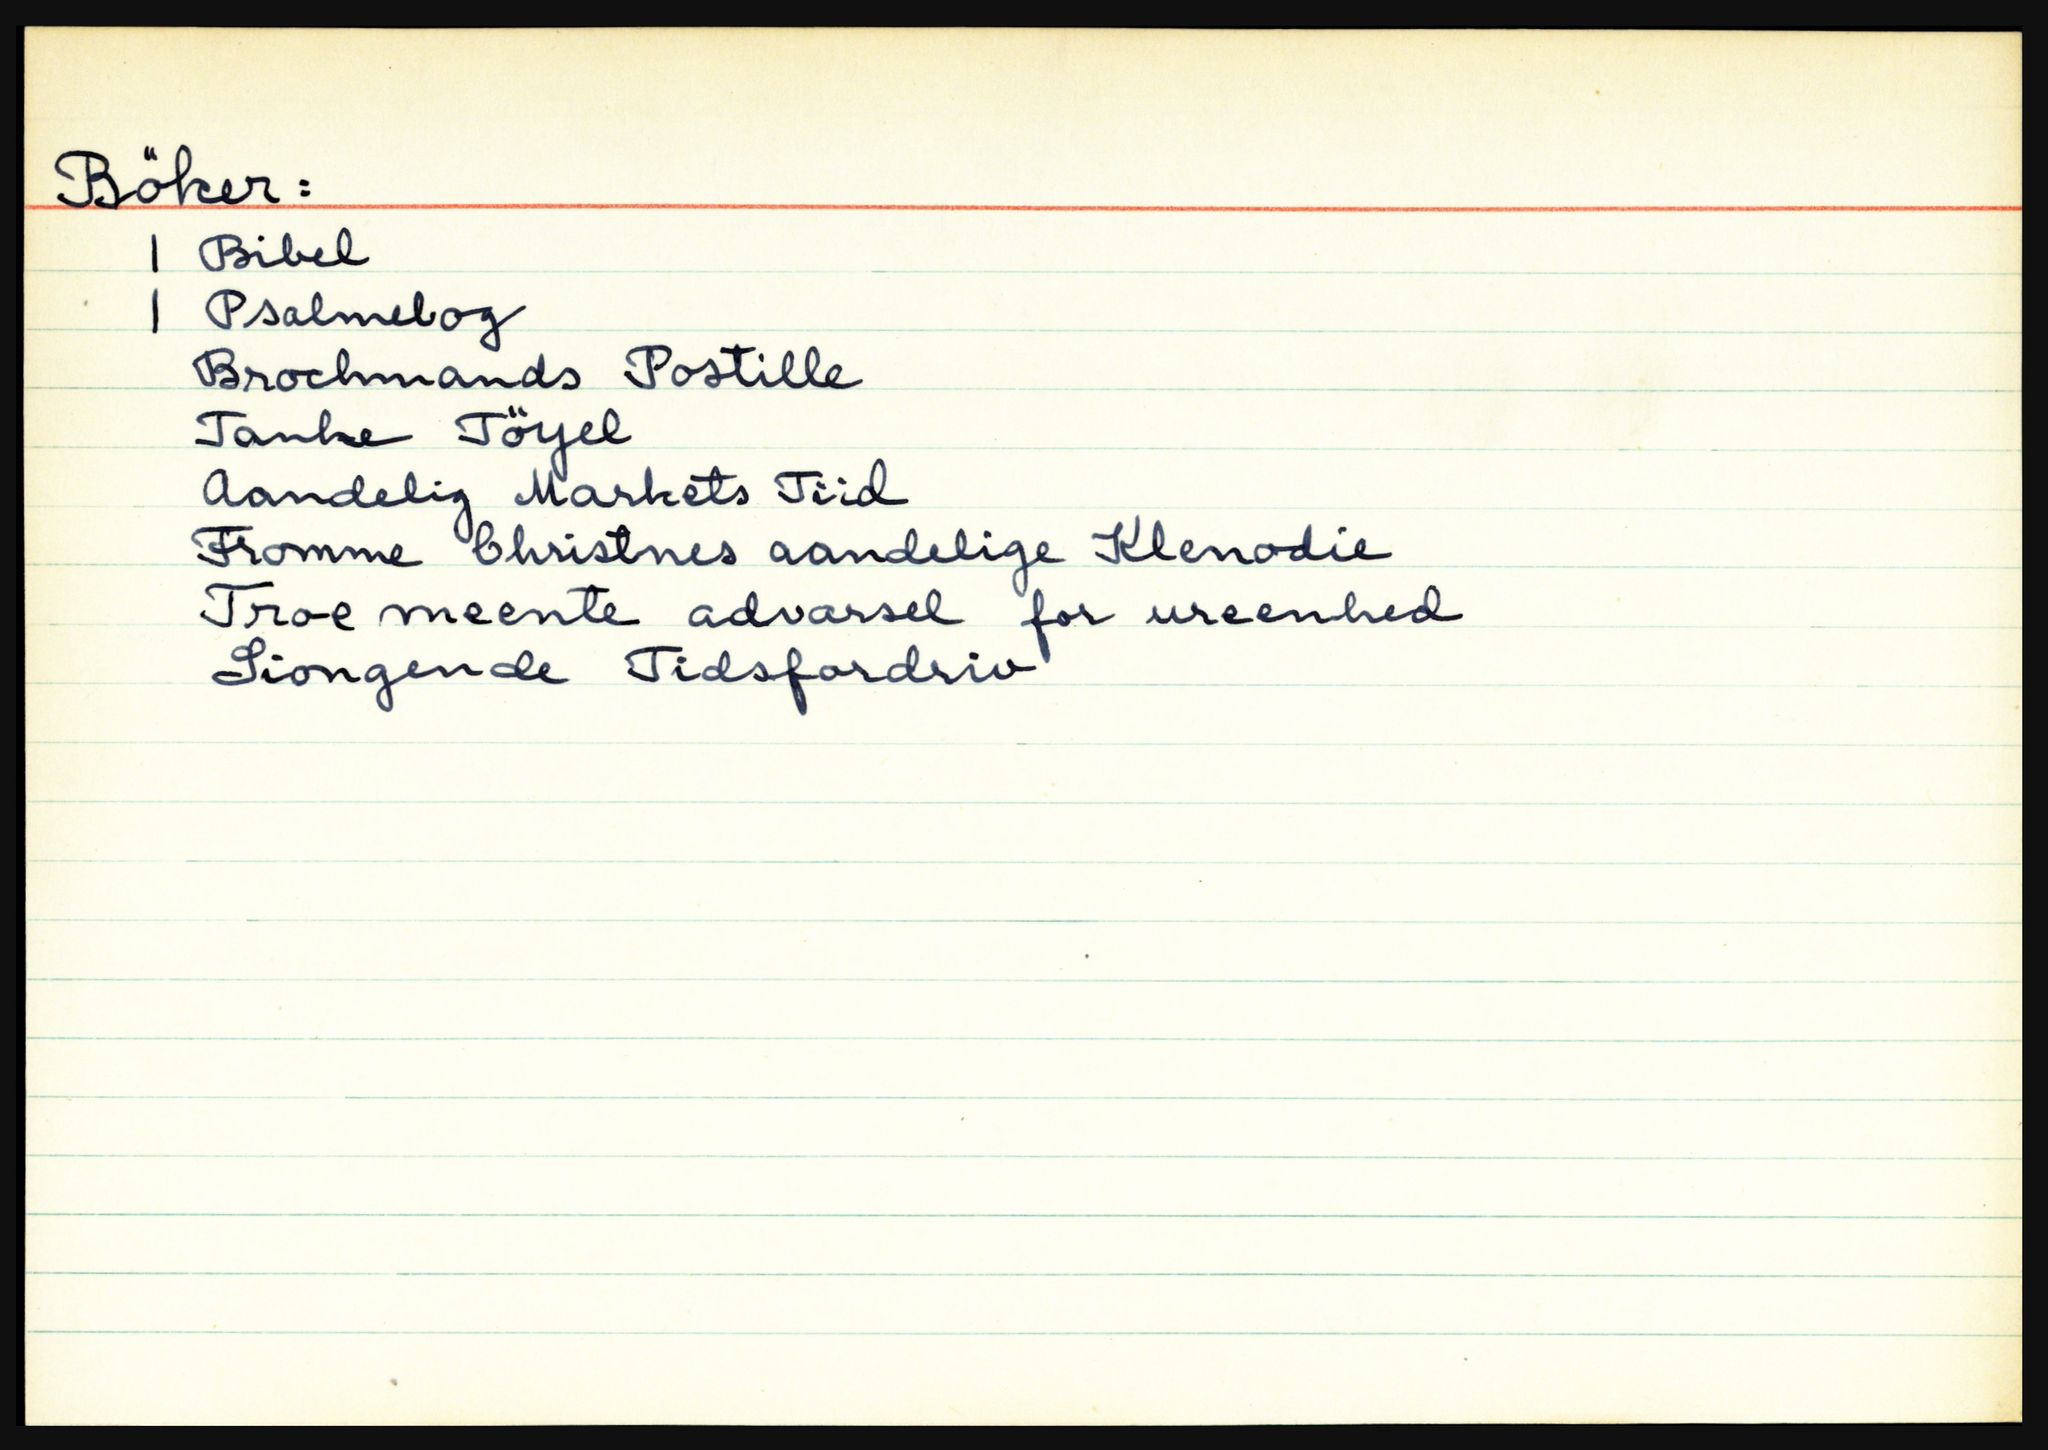 Böker:
1 Bibel
1 Psalmebog
Brochmands Postille
Tanke Töyel
Aandelig Markets Tiid
Fromme Christnes aandelige Klenodie
Troe meente advarsel for ureenhed
Siongende Tidsfordriv